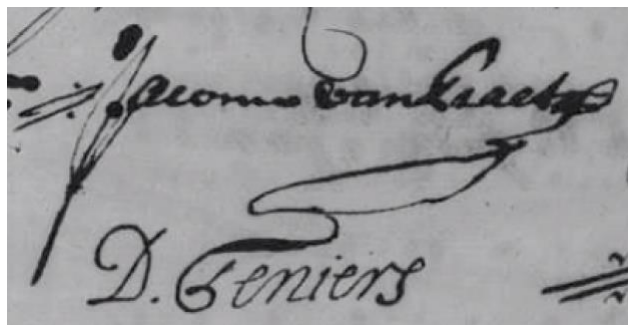 Jacomo van Eraets
D. Teniers